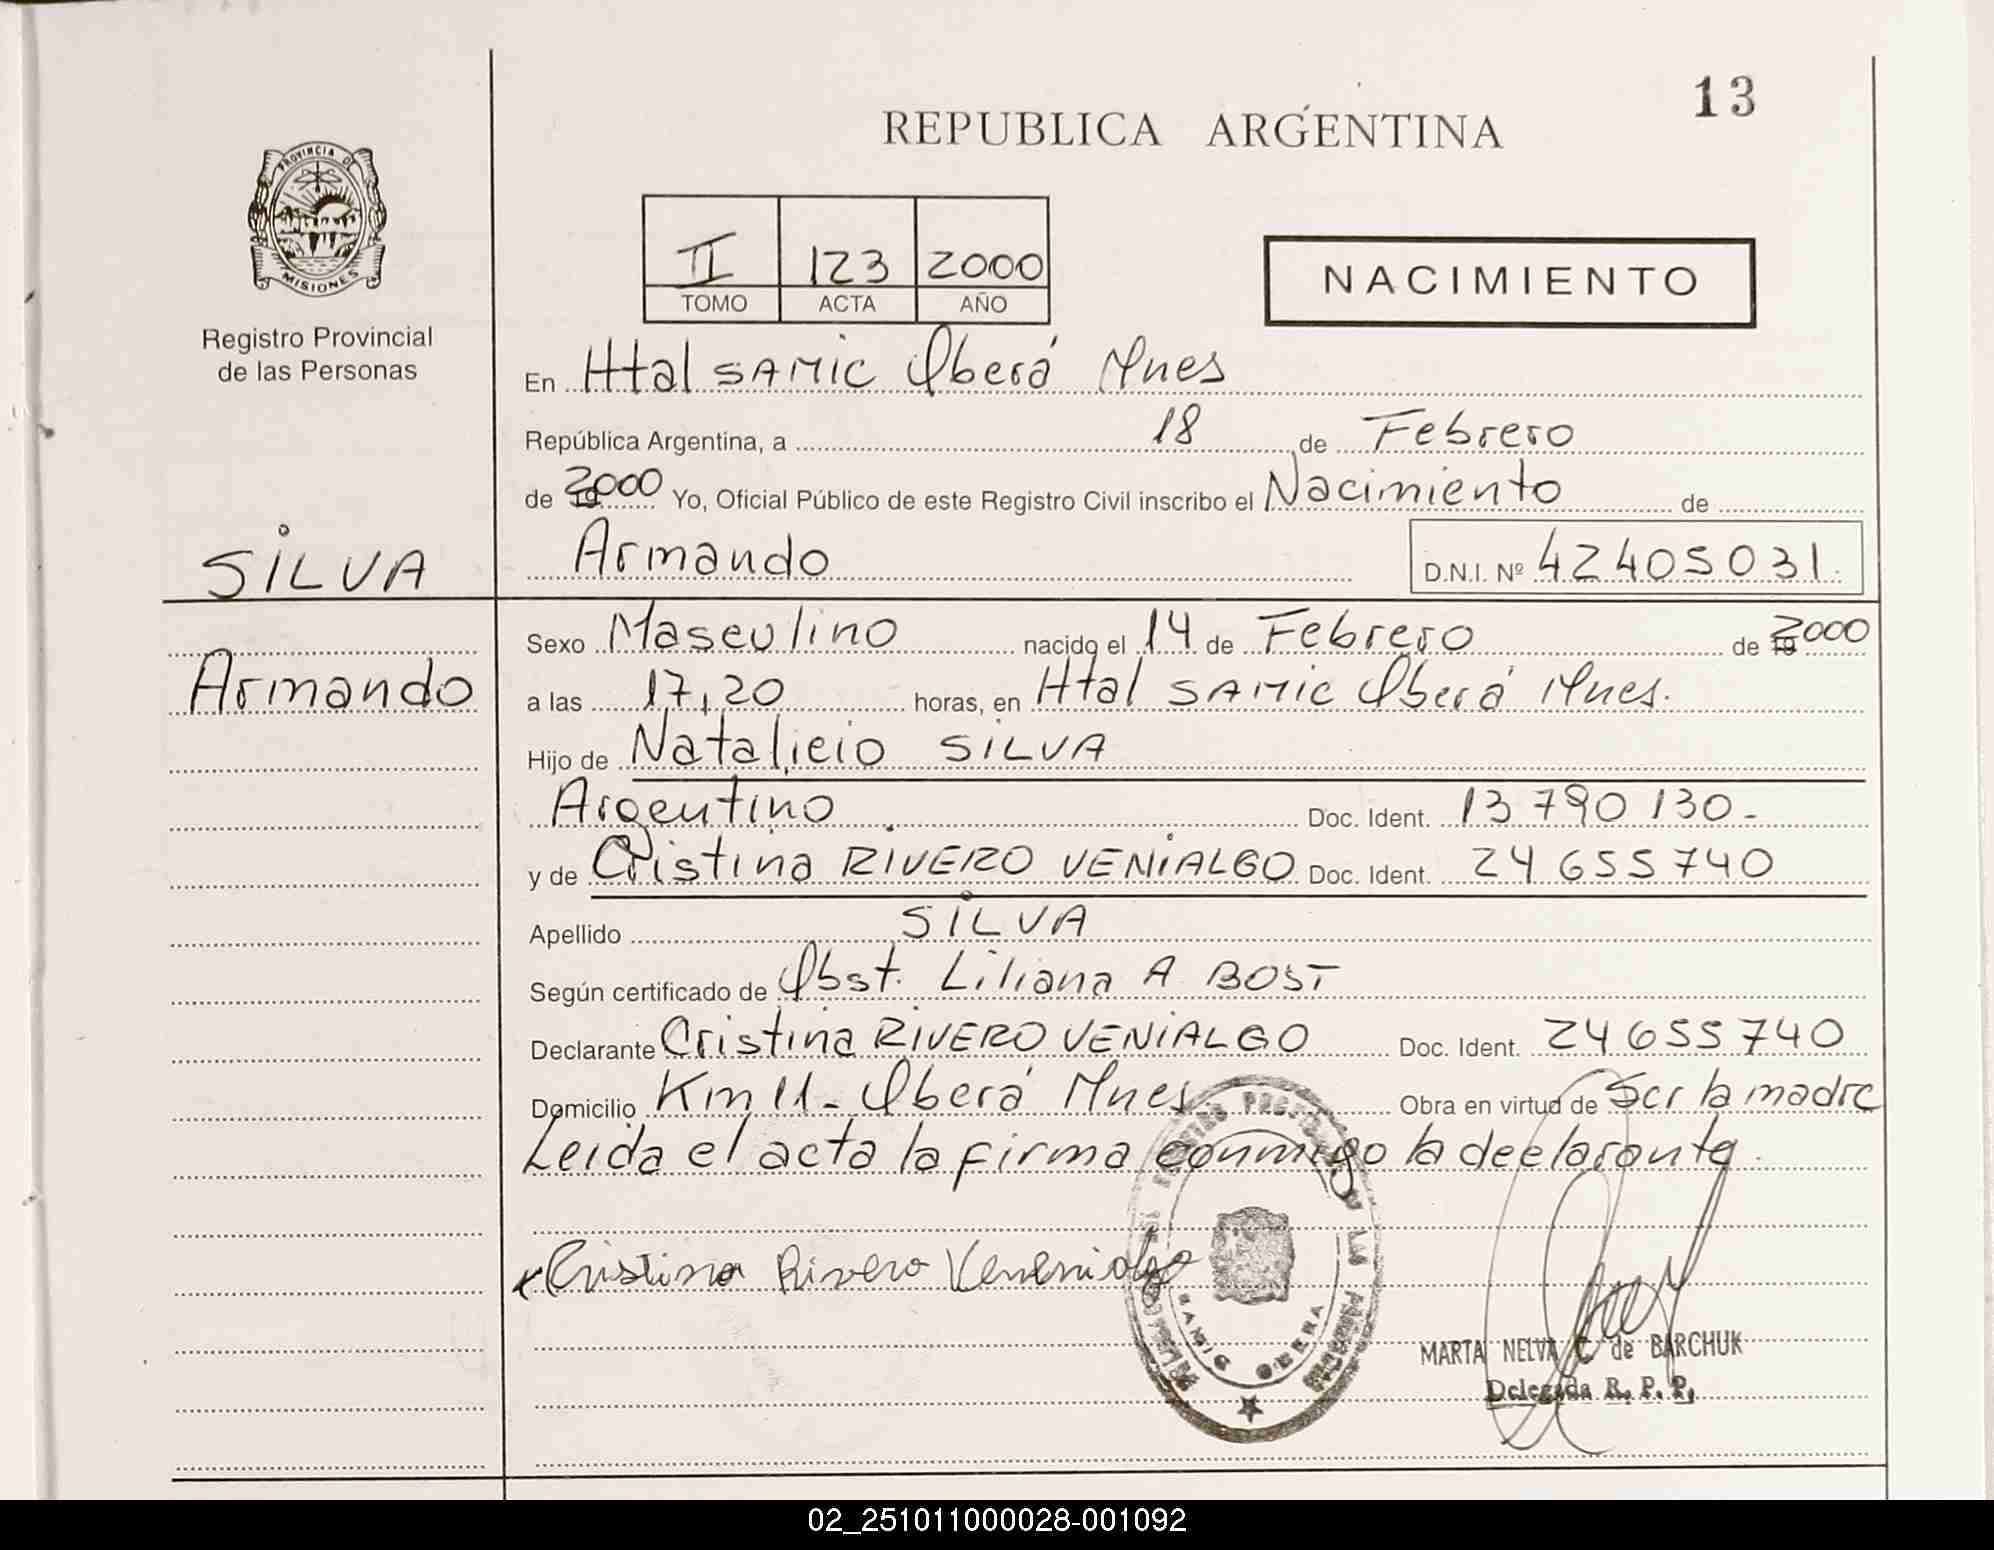 13
REPUBLICA ARGENTINA
PROVINCIA DE
MISIONES
Registro Provincial
de las Personas
II 123 2000
TOMO ACTA AÑO
NACIMIENTO
En Htal SAMIC Oberá Mnes
República Argentina, a 18 de Febrero
de 2000 Yo, Oficial Público de este Registro Civil inscribo el Nacimiento de
SILVA
Armando D.N.I. Nº 42405031.
Armando
Sexo Masculino nacido el 14 de Febrero de 2000
a las 17,20 horas, en Htal SAMIC Oberá Mnes.
Hijo de Natalicio SILVA
Argentino Doc. Ident. 13 790 130-
y de Cristina RIVERO VENIALGO Doc. Ident. 24 655 740
Apellido SILVA
Según certificado de Obst. Liliana A BOST
Declarante Cristina RIVERO VENIALGO Doc. Ident. 24 655 740
Domicilio Km 11- Oberá Mnes Obra en virtud de Ser la madre
Leida el acta la firma conmigo la declarante.
x Cristina Rivero
SAMIC OBERA
MARTA NELVA C de BARCHUK
Delegada R. P. P.
02_251011000028-001092